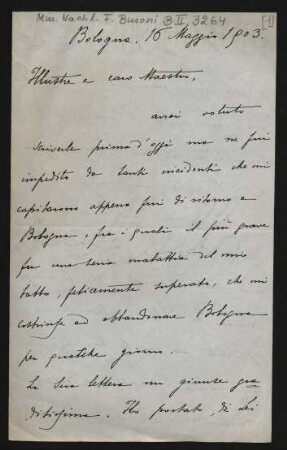 Mus. Nachl. F. Busoni B II, 3264 [1]
Bologna, 16 Maggio 1903.
Illustre e caro Maestro,
avrei voluto
scriverle prima d'oggi ma ne fui
impedito da tanti incidenti che mi
capitarono appena fui di ritorno a
Bologna, fra i quali il più grave
fu una seria malattia del mio
babbo, felicemente superata, che mi
costrinse ad abbandonare Bologna
per qualche giorno.
La Sua lettera mi giunse gra
ditissima. Ho parlato di Lei